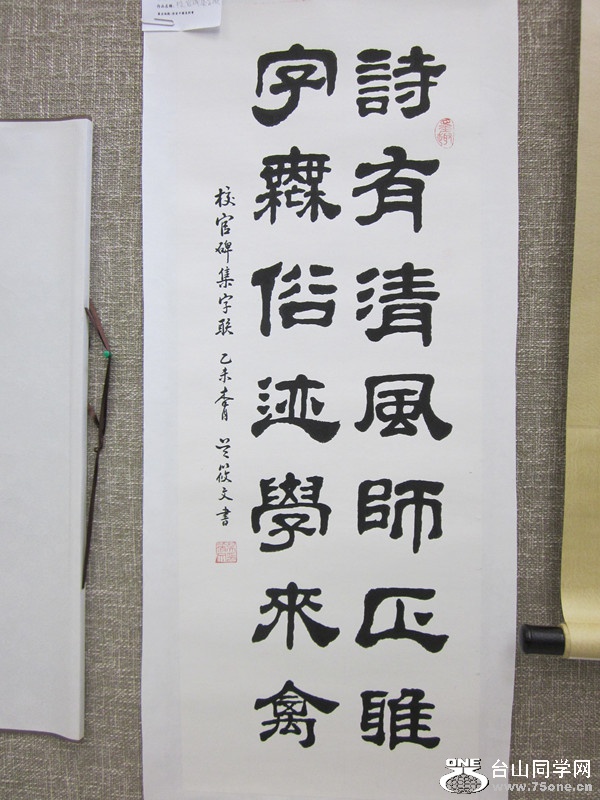 詩有清風師正雅
字無俗迹學來禽
校官碑集字联 乙未春月 筱文書
ONE 台山同学网
www.75one.cn